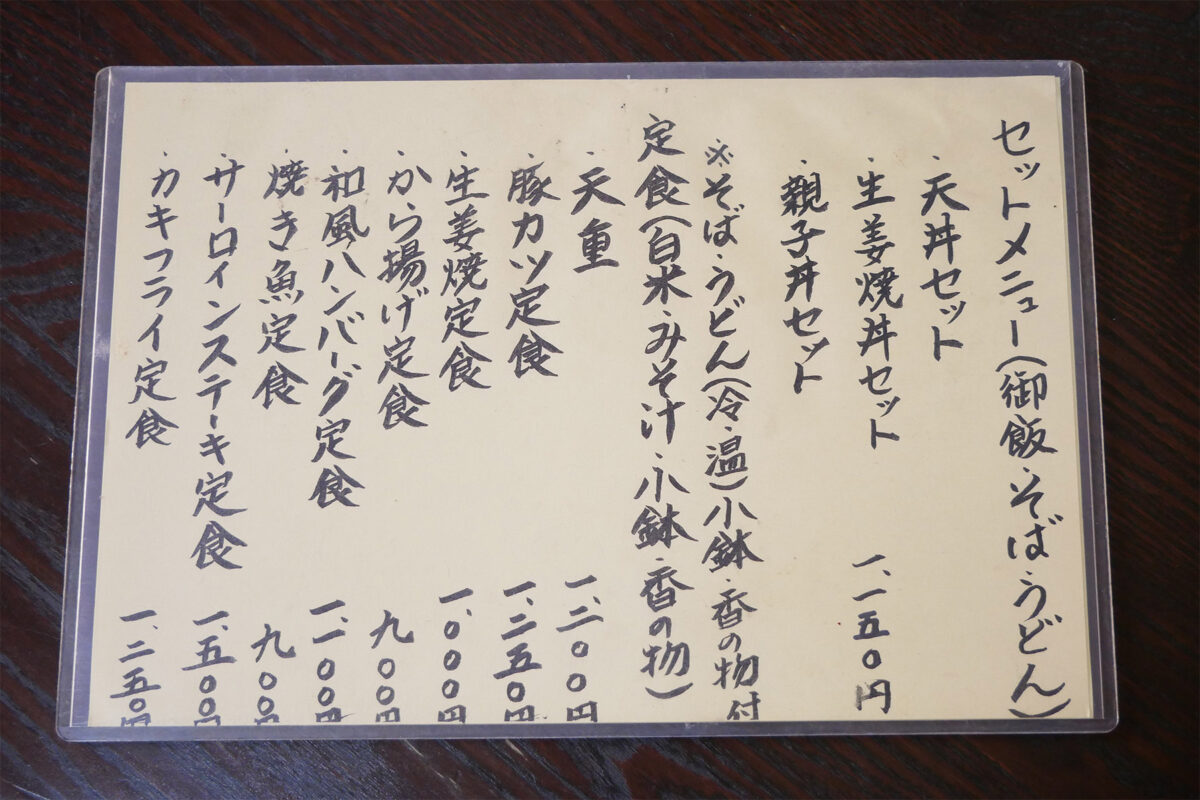 セットメニュー(御飯・そば・うどん)
・天丼セット
・生姜焼丼セット 一、一五〇円
・親子丼セット
※そば・うどん(冷・温)小鉢・香の物付
定食(白米・みそ汁・小鉢・香の物)
・天重 一、二〇〇円
・豚カツ定食 一、二五〇円
・生姜焼定食 一、〇〇〇円
・から揚げ定食 九〇〇円
・和風ハンバーグ定食 一、一〇〇円
・焼き魚定食 九〇〇円
・サーロインステーキ定食 一、五〇〇円
・カキフライ定食 一、二五〇円